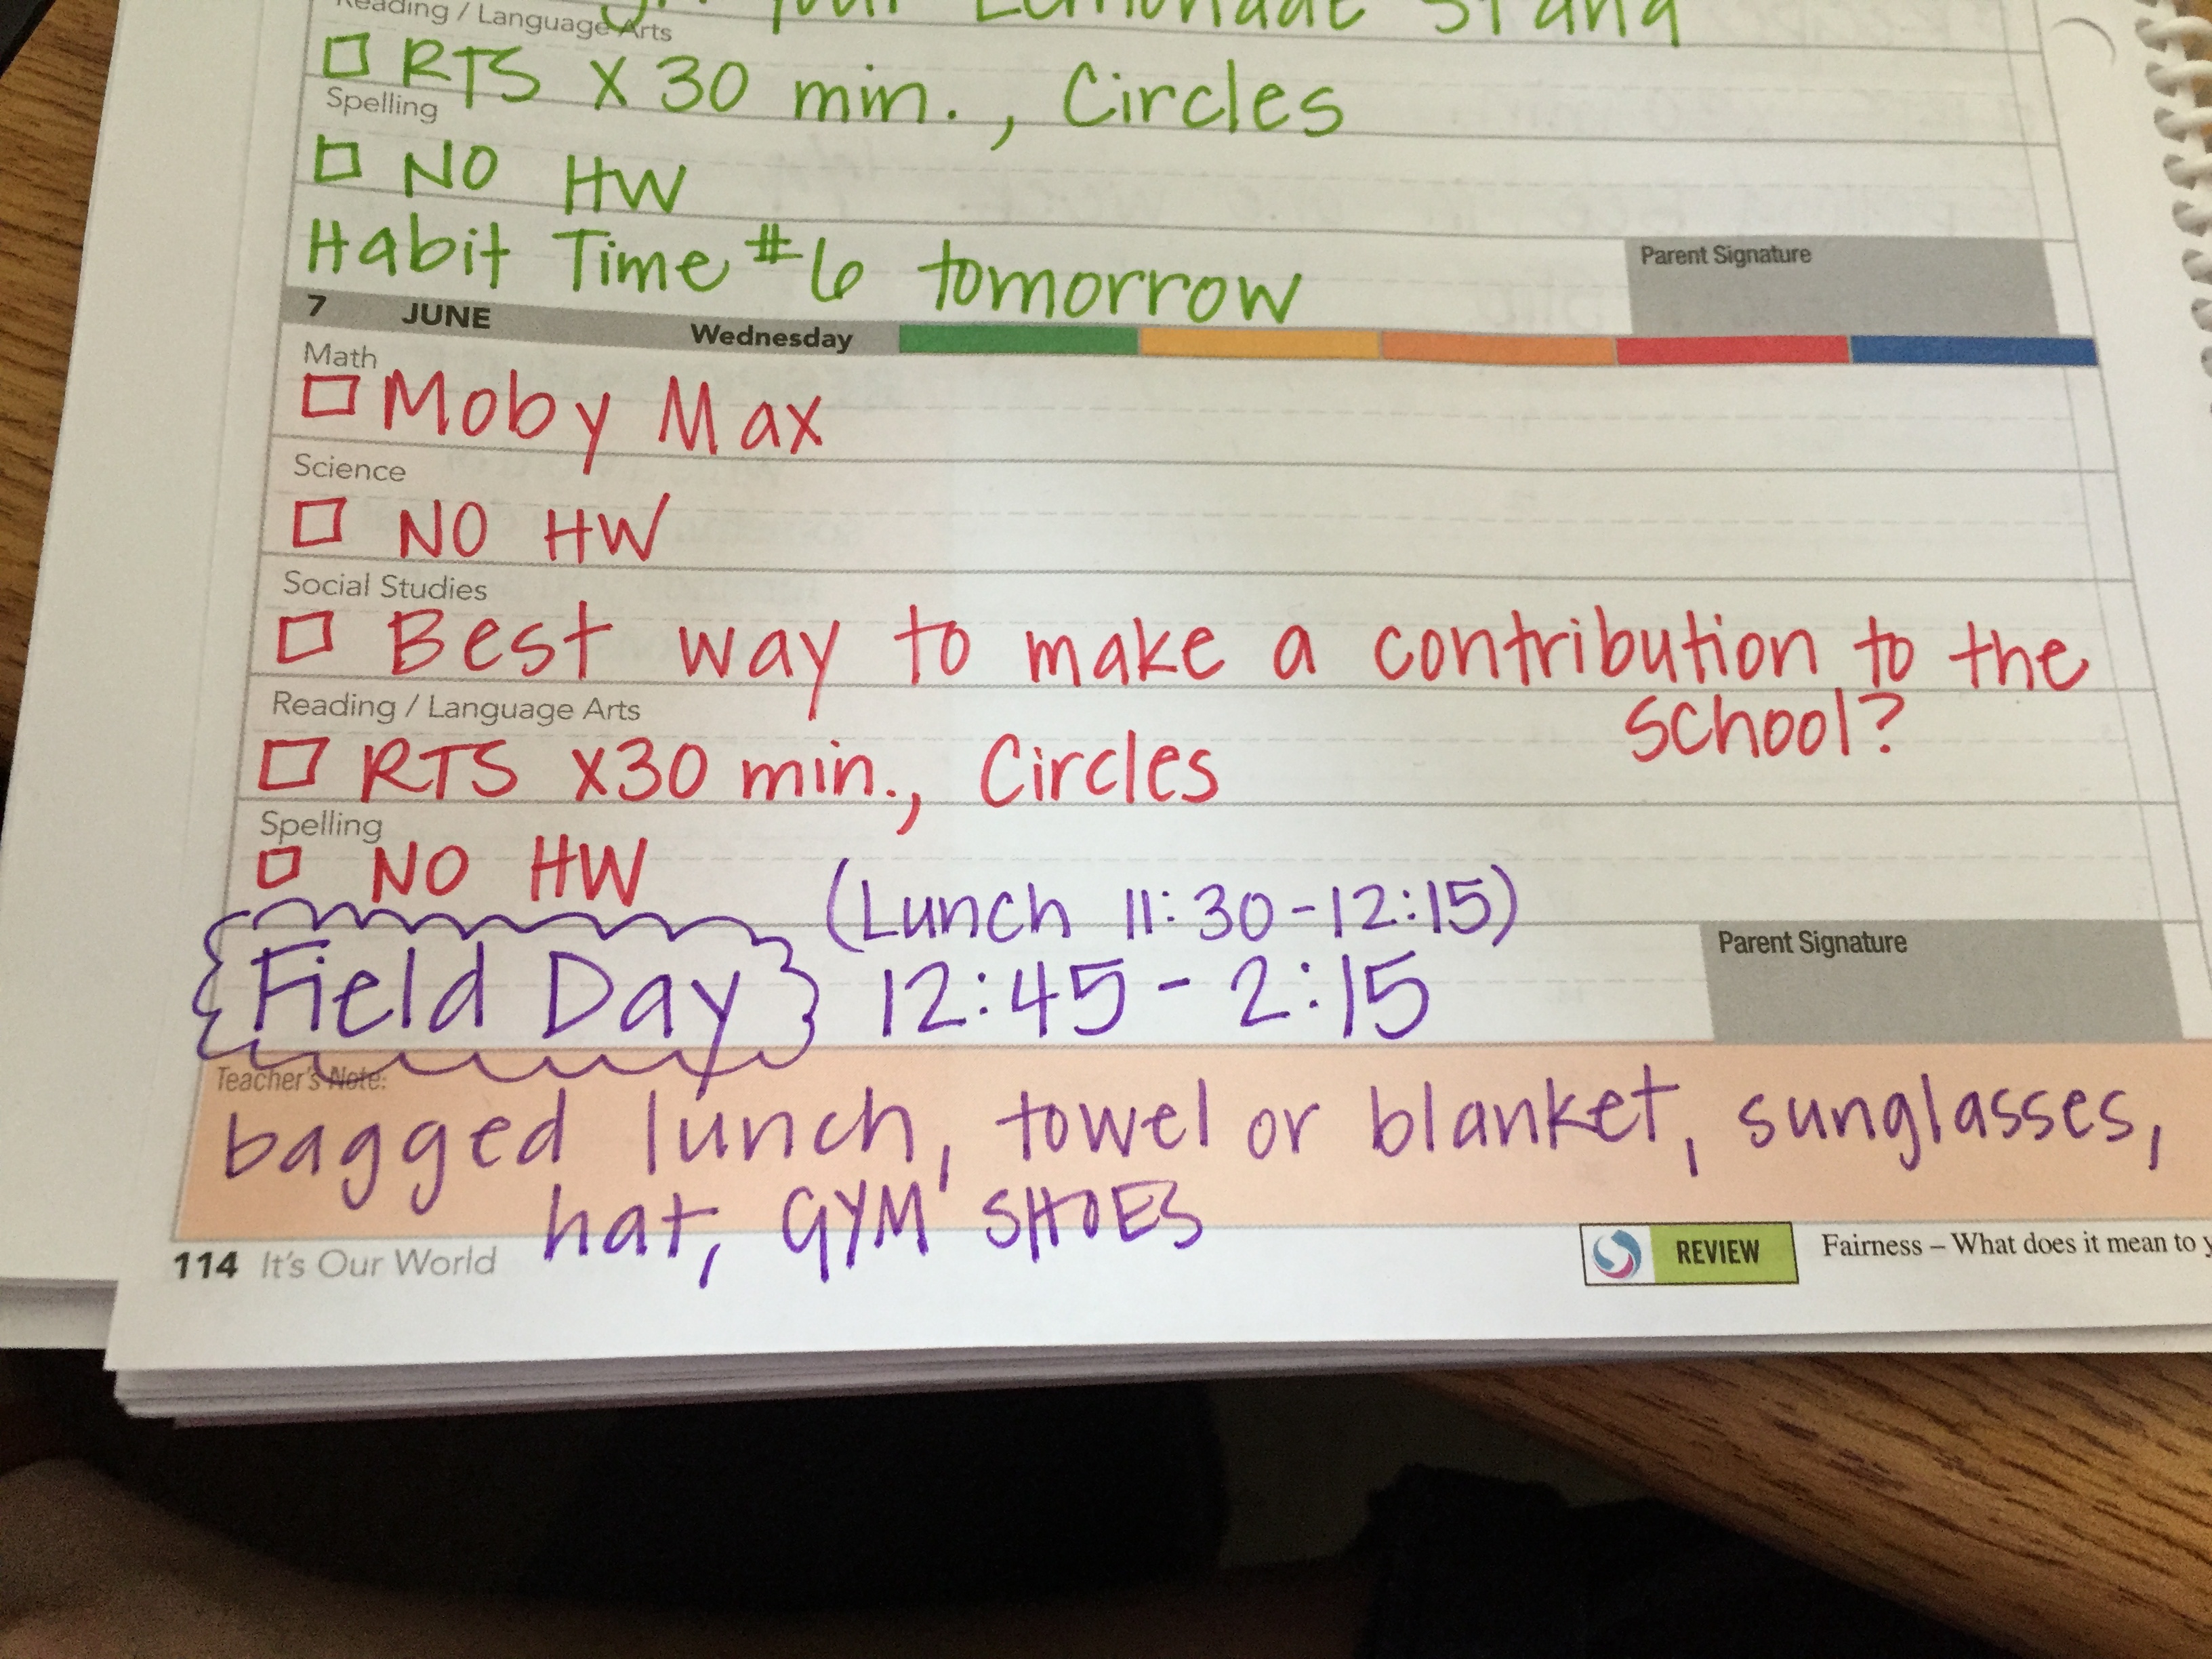 Reading / Language Arts
your Lemonade Stand
☐ RTS X 30 min., Circles
Spelling
☐ NO HW
Habit Time #6 tomorrow
Parent Signature
7 JUNE Wednesday
Math
☐ Moby Max
Science
☐ NO HW
Social Studies
☐ Best way to make a contribution to the
school?
Reading / Language Arts
☐ RTS X30 min., Circles
Spelling
☐ NO HW
(Lunch 11:30-12:15)
Field Day 12:45 - 2:15
Parent Signature
Teacher's Note:
bagged lunch, towel or blanket, sunglasses,
hat, GYM SHOES
114 It's Our World
REVIEW Fairness – What does it mean to